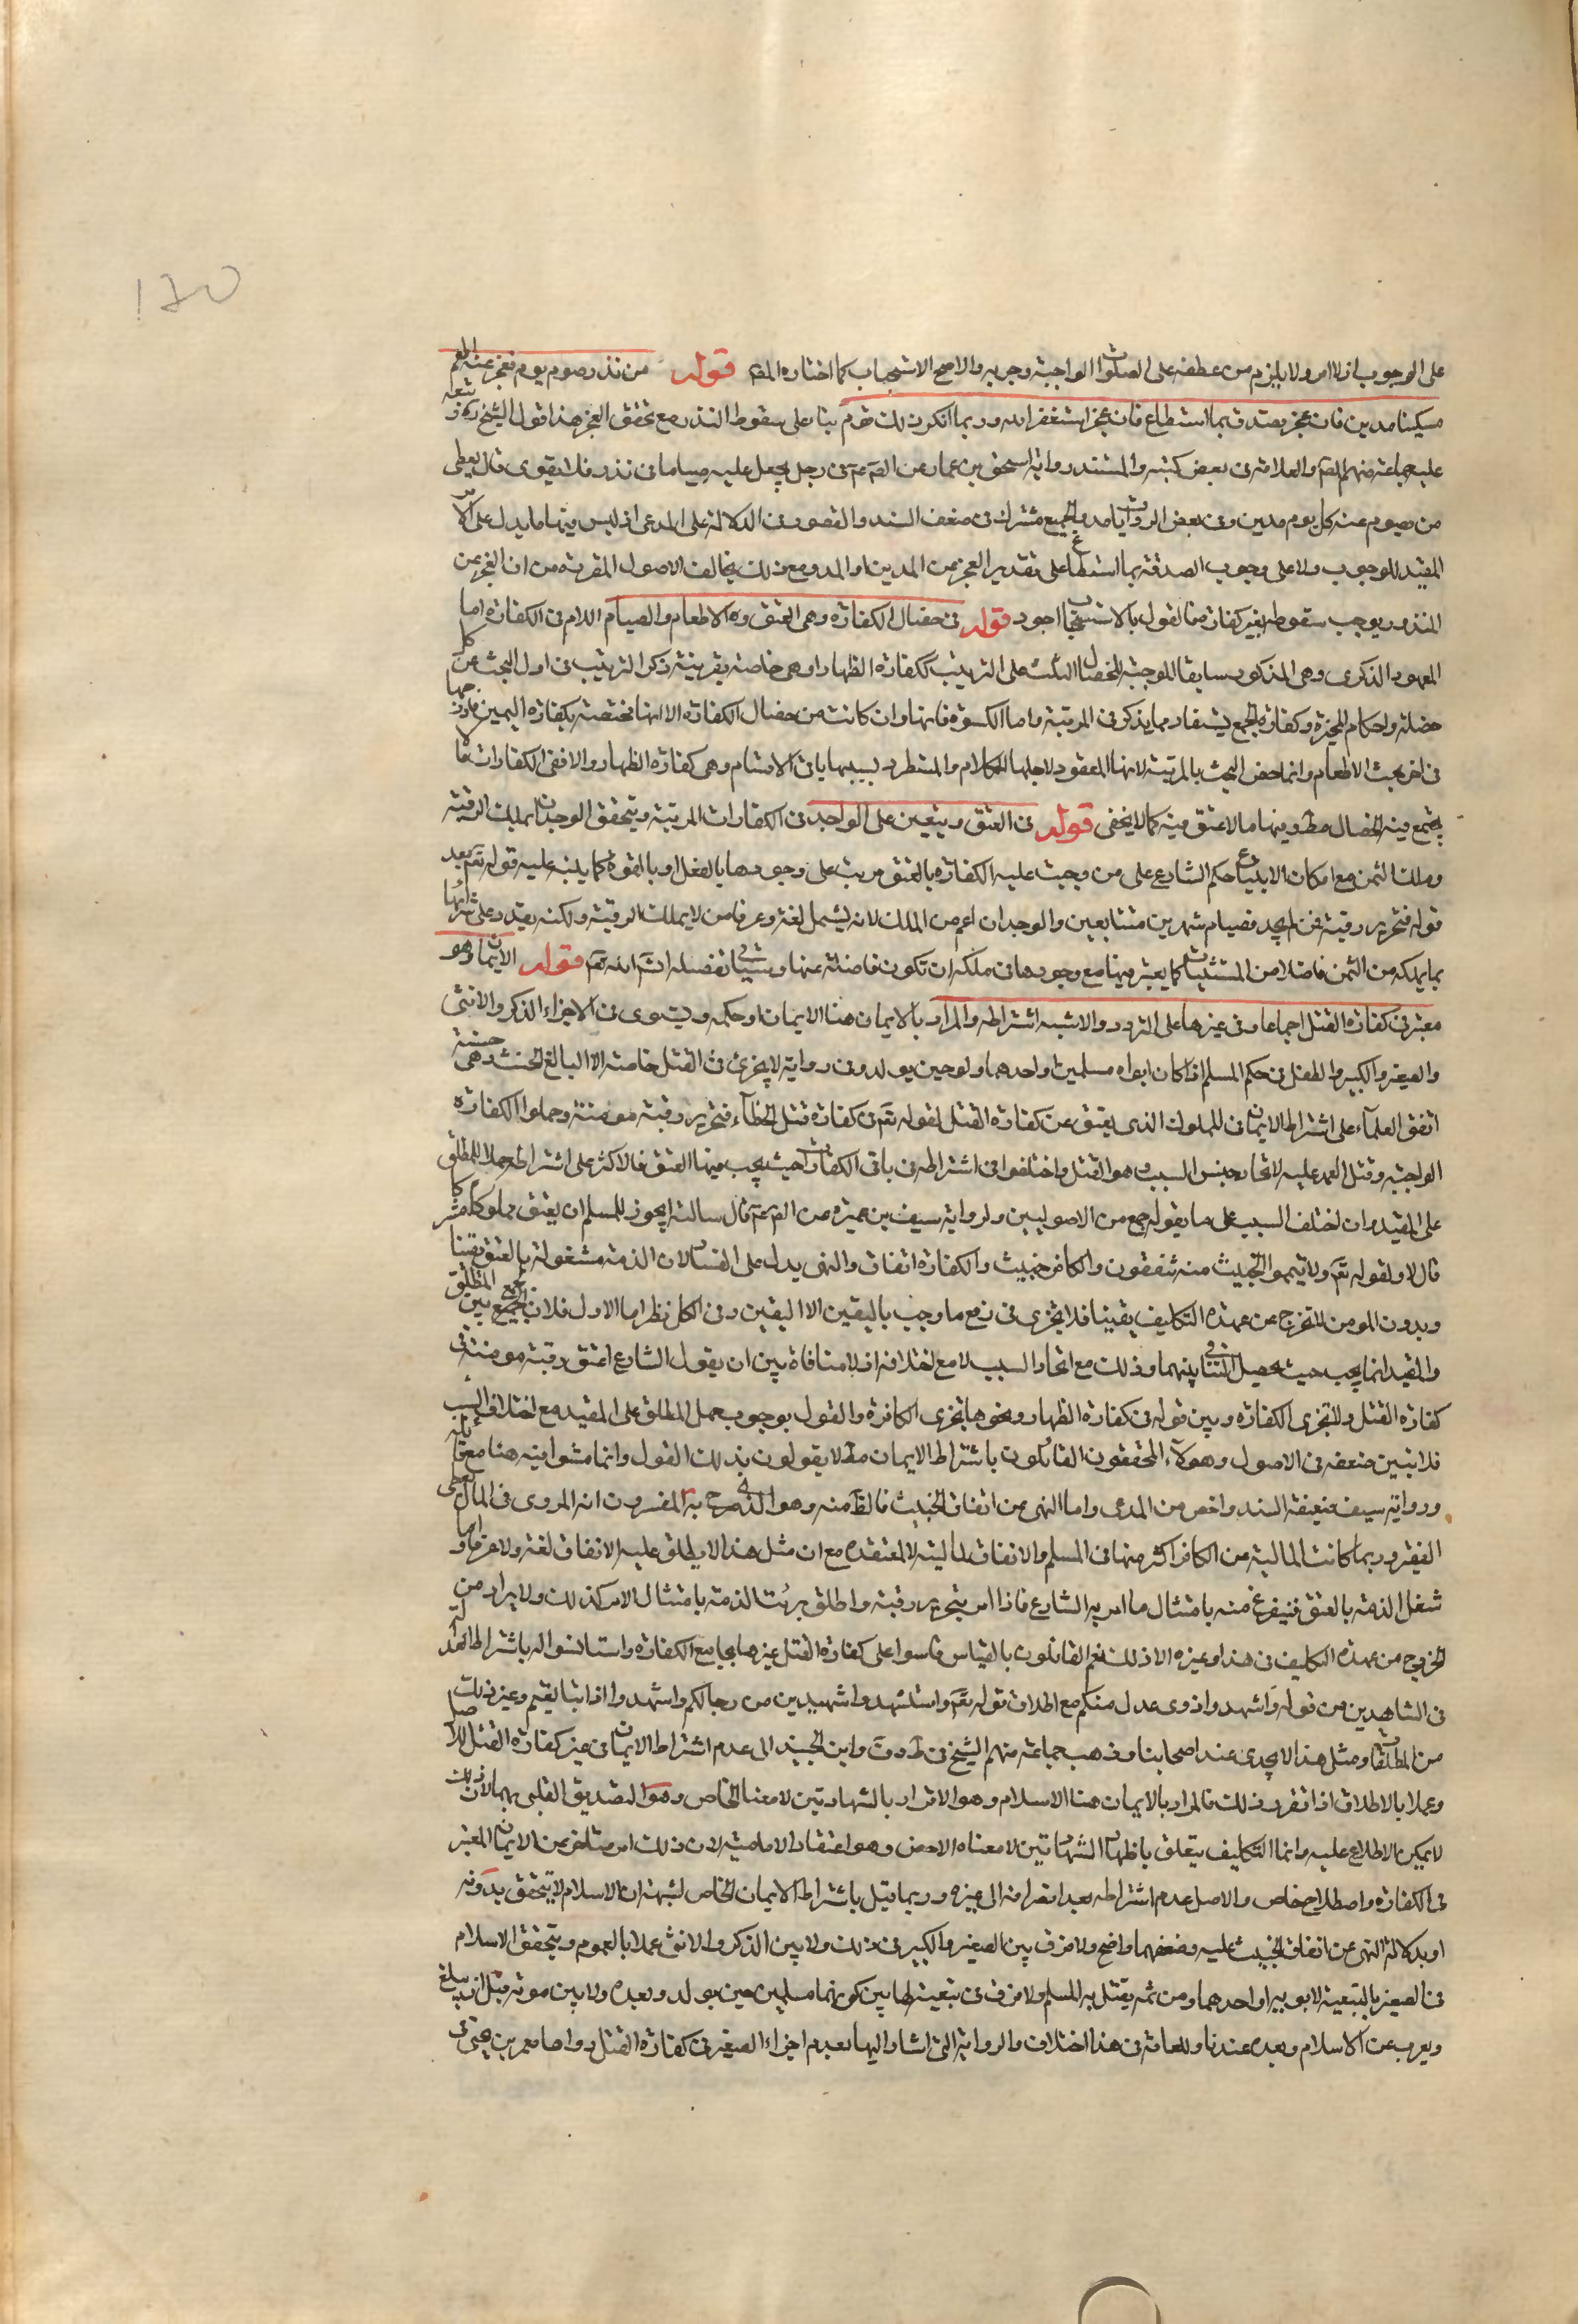 على الوجوب اذ لا امر ولا يلزم من عطفه على الصلوات الواجبة وجوبه والاصح الاستحباب كما اختاره المصـ قوله من نذر صوم يوم فعجز عنه اطعم
مسكينا مدين فان عجز يصدق بما استطاع فان عجز استغفر الله وربما انكر ذلك قوم بناء على سقوط النذر مع تحقق العجز هذا قول الشيخ ره وتبعه
عليه جماعة منهم المصـ والعلامة في بعض كتبه والمستند رواية اسحق بن عمار عن الصـ عـ في رجل يجعل عليه صياما في نذر فلا يقوى قال يعطي
من يصوم عنه كل يوم مدين وفي بعض الروايات مد والجميع مشترك في ضعف السند والقصور في الدلالة على المدعى اذ ليس فيها ما يدل على الامر
المفيد للوجوب ولا على وجوب الصدقة بما استطاع على تقدير العجز من المدين او المد ومع ذلك يخالف الاصول المقررة من ان العجز عن
المنذور يوجب سقوطه بغير كفارة فالقول بالاستحباب اجود قوله في خصال الكفارة وهي العتق والاطعام والصيام اللام في الكفارة اما
للمعهود الذكرى وهي المذكور سابقا للموجبة للخصال الثلث على الترتيب ككفارة الظهار او هي خاصة بقرينة ذكر الترتيب في اول البحث عن كل
خصلة واحكام المخيرة وكفارة الجمع يستفاد مما يذكر في المرتبة واما الكسوة فانها وان كانت من خصال الكفارة الا انها مختصة بكفارة اليمين
في اخر بحث الاطعام وانما خص البحث بالمرتبة لانها المعقود لاجلها الكلام والمستطرد بسببها باقي الاقسام وهي كفارة الظهار والا ففي الكفارات ما لا
يجتمع فيه الخصال مط ومنها ما لا عتق فيه كما لا يخفى قوله في العتق ويتعين على الواجد في الكفارات المرتبة ويتحقق الوجدان بملك الرقبة
وملك الثمن مع امكان الابتياع حكم الشارع على من وجبت عليه الكفارة بالعتق مرتب على وجودها بالفعل او بالقوة كما ينبه عليه قوله تعـ بعد
قوله فتحرير رقبة فمن لم يجد فصيام شهرين متتابعين والوجدان اعم من الملك لانه يشمل لغة وعرفا من لا يملك الرقبة ولكنه يقدر على شرائها
بما يملكه من الثمن فاضلا من المستثنيات كما يعتبر فيها مع وجودها في ملكه ان تكون فاضلة عنها وسيأتي تفصيله انشـ الله تعـ قوله الايمان وهو
معتبر في كفارة القتل اجماعا وفي غيرها على التردد والاشبه اشتراطه والمراد بالايمان هنا الايمان او حكمه ويستوى في الاجزاء الذكر والانثى
والصغير والكبير والطفل في حكم المسلم اذا كان ابواه مسلمين او احدهما ولو حين يولد وفي رواية لا يجزئ في القتل خاصة الا البالغ الحنث وهي حسنة
اتفق العلماء على اشتراط الايمان في المملوك الذي يعتق عن كفارة القتل لقوله تعـ في كفارة قتل الخطاء فتحرير رقبة مؤمنة وحملوا الكفارة
الواجبة وقتل العمد عليه لاتحاد جنس السبب وهو القتل واختلفوا في اشتراطه في باقي الكفارات حيث يجب فيها العتق فالاكثر على اشتراطه حملا للمطلق
على المقيد وان اختلف السبب على ما يقوله جمع من الاصوليين ولرواية سيف بن عميرة عن الصـ عـ قال سالته ايجوز للمسلم ان يعتق مملوكا مشركا
قال لا ولقوله تعـ ولا تيمموا الخبيث منه تنفقون والكافر خبيث والكفارة انفاق والنهي يدل على الفساد لان الذمة مشغولة بالعتق يقينا
وبدون المؤمن لا تخرج عن عهدة التكليف يقينا فلا يجزى في رفع ما وجب باليقين الا اليقين وفي الكل نظر اما الاول فلان الجمع بين المطلق
والمقيد انما يجب حيث يحصل التنافي بينهما وذلك مع اتحاد السبب لا مع اختلافه اذ لا منافاة بين ان يقول الشارع اعتق رقبة مؤمنة في
كفارة القتل ولا تجزى الكافرة وبين قوله في كفارة الظهار ونحوها تجزى الكافرة والقول بوجوب حمل المطلق على المقيد مع اختلاف السبب
فلا تبين ضعفه في الاصول وهولاء المحققون القائلون باشتراط الايمان مط لا يقولون بذلك القول وانما مشوا فيه هنا مع قائله
ورواية سيف ضعيفة السند واخص من المدعى واما النهي عن انفاق الخبيث فالظـ منه وهو الذي صرح به المفسرون انه المروى في المال يعطى
الفقير وربما كانت المالية من الكافر اكثر منها في المسلم والانفاق لمالية لا لمعتقده مع ان مثل هذا لا يطلق عليه الانفاق لغة ولا عرفا واما
شغل الذمة بالعتق فيفرغ منه بامتثال ما امر به الشارع فاذا امر بتحرير رقبة واطلق برئت الذمة بامتثال الامر كذلك ولا يراد من
الخروج من عهدة التكليف في هذا وغيره الا ذلك نعم القائلون بالقياس قاسوا على كفارة القتل غيرها بجامع الكفارة واستانسوا له باشتراط العدالة
في الشاهدين من قوله واشهدوا ذوى عدل منكم مع اطلاق قوله تعـ واستشهدوا شهيدين من رجالكم واشهدوا اذا تبايعتم وغير ذلك
من المطلقات ومثل هذا لا يجدى عند اصحابنا وذهب جماعة منهم الشيخ في ط و ف وابن الجنيد الى عدم اشتراط الايمان في غير كفارة القتل للاصل
وعملا بالاطلاق اذا تقرر ذلك فالمراد بالايمان هنا الاسلام وهو الاقرار بالشهادتين لا معناه الخاص وهو التصديق القلبي بهما لان ذلك
لا يمكن الاطلاع عليه وانما التكليف يتعلق باظهار الشهادتين لا معناه الاخص وهو اعتقاد الامامية لان ذلك امر متاخر عن الايمان المعتبر
في الكفارة واصطلاح خاص والاصل عدم اشتراطه بعد انصرافه الى غيره وربما قيل باشتراط الايمان الخاص لشبهة ان الاسلام لا يتحقق بدونه
او بدلالة النهي عن انفاق الخبيث عليه وضعفهما واضح ولا فرق بين الصغير والكبير في ذلك ولا بين الذكر والانثى عملا بالعموم ويتحقق الاسلام
في الصغير بالتبعية لابويه او احدهما ومن ثم يقتل به المسلم ولا فرق في تبعيته لهما بين كونهما مسلمين حين يولد وبعده ولا بين موته قبل ان يبلغ
ويعرب عن الاسلام وبعده عندنا وللعامة في هذا اختلاف والرواية التي اشار اليها بعدم اجزاء الصغير في كفارة القتل رواها معمر بن يحيى في